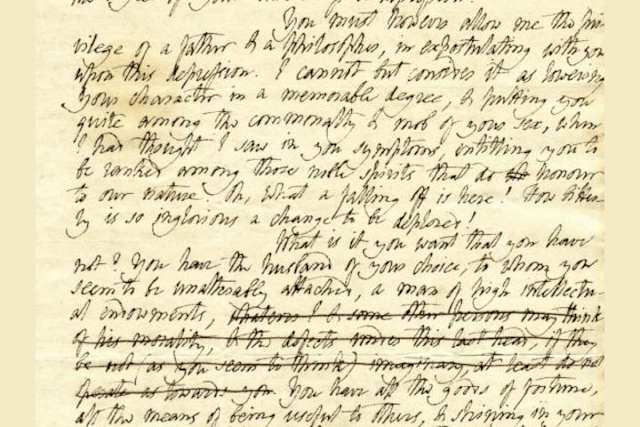 the eye of your
You must however allow me the pri
vilege of a father & a philosopher, in expostulating with you
upon this depression. I cannot but consider it as lowering
your character in a memorable degree, & putting you
quite among the commonalty & mob of your sex, when
I had thought I saw in you symptoms entitling you to
be ranked among those noble spirits that do the honour
to our nature. Oh, what a falling off is here! How bitter
ly is so inglorious a change to be deplored!
What is it you want that you have
not? You have the husband of your choice, to whom you
seem to be unalterably attached, a man of high intellectu
al endowments, whatever I & some other persons may think
of his morality, & the defects under this last head, if they
be not (as you seem to think) imaginary, at least do not
operate as towards you. You have all the goods of fortune,
all the means of being useful to others, & shining in your